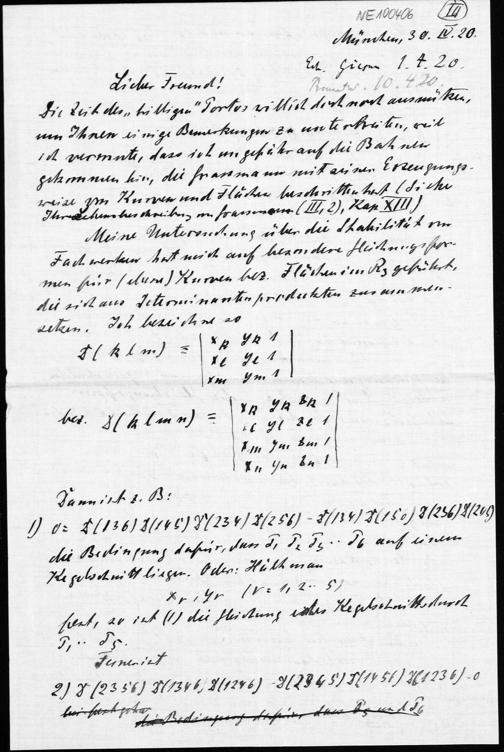 NE100406
IQ
München, 30. IV. 20.
Erh. Giersn 1. 4. 20.
10. 4. 20.
Lieber Freund!
Die Zeit des „billigen" Portos will ich doch noch ausnützen,
um Ihnen einige Bemerkungen zu unterbreiten, weil
ich vermute, dass ich ungefähr auf die Bahnen
gekommen bin, die Grassmann mit seinen Erzeugungs-
weise von Kurven und Flächen beschritten hat (siehe
Ihre Lebensbeschreibung von Grassmann (III, 2), Kap XIII)
Meine Untersuchung über die Stabilität von
Fachwerken hat mich auf besondere Gleichungsfor-
men für (ebene) Kurven bez. Flächen im R3 geführt,
die sich aus Determinantenprodukten zusammen-
setzen. Ich bezeichne so
D(k l m) = | xk yk 1
xl yl 1
xm ym 1 |
bez. D(k l m n) = | xk yk zk 1
xl yl zl 1
xm ym zm 1
xn yn zn 1 |
Dann ist z. B:
1) 0 = D(136) D(145) D(234) D(256) - D(134) D(156) D(236) D(245)
die Bedingung dafür, dass P1 P2 P3 .. P6 auf einem
Kegelschnitt liegen. Oder: Hält man
xν, yν (ν = 1, 2 .. 5)
fest, so ist (1) die Gleichung eines Kegelschnitts durch
P1 .. P5.
Ferner ist
2) D(2356) D(1346) D(1246) - D(2345) D(1456) D(1236) = 0
die Bedingung dafür, dass P5 und P6